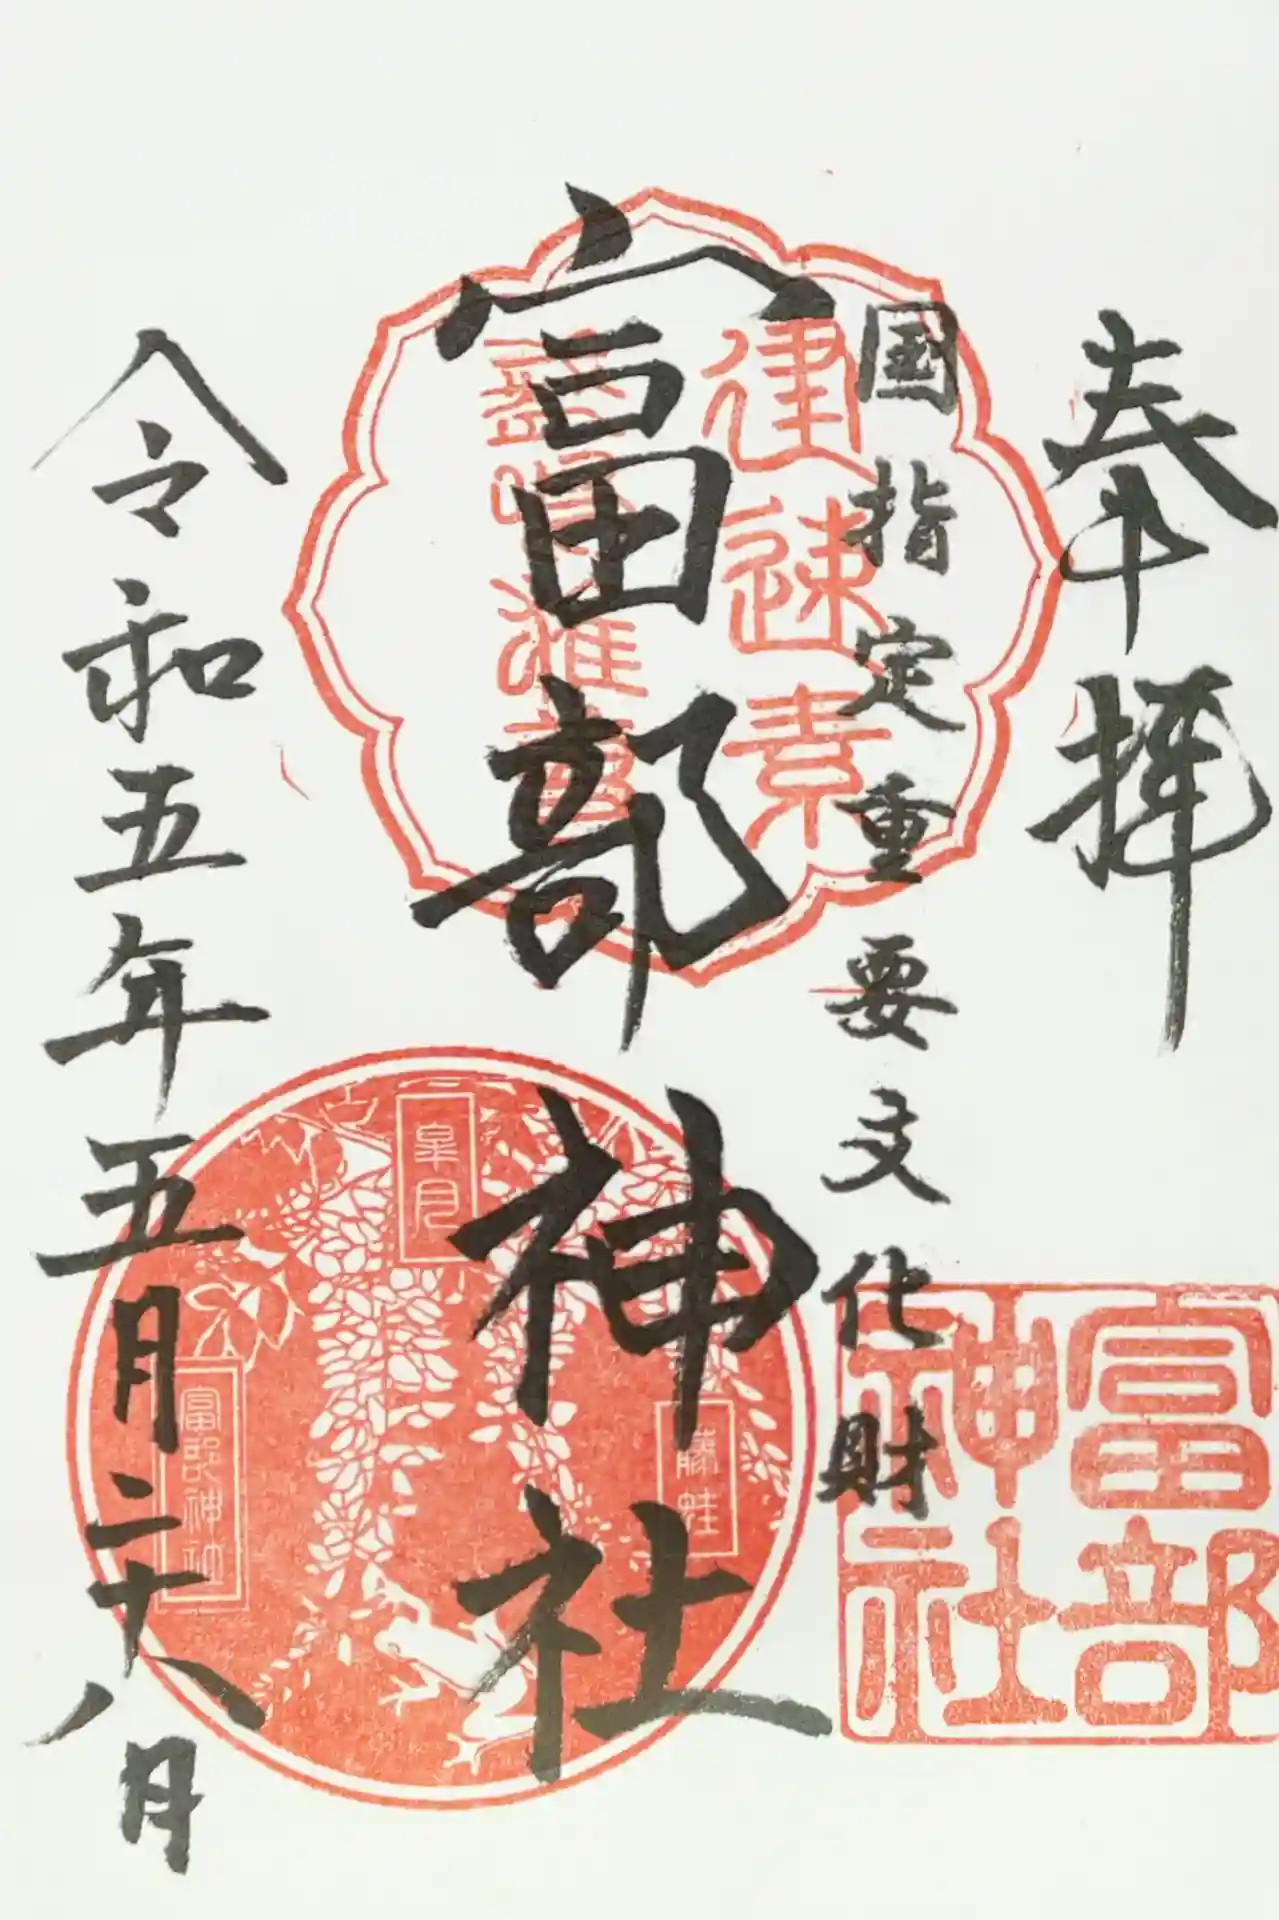 奉拝
国指定重要文化財
富部神社
令和五年五月二十八日
建速素
富部
神社
皐月
藤蛙
富部神社